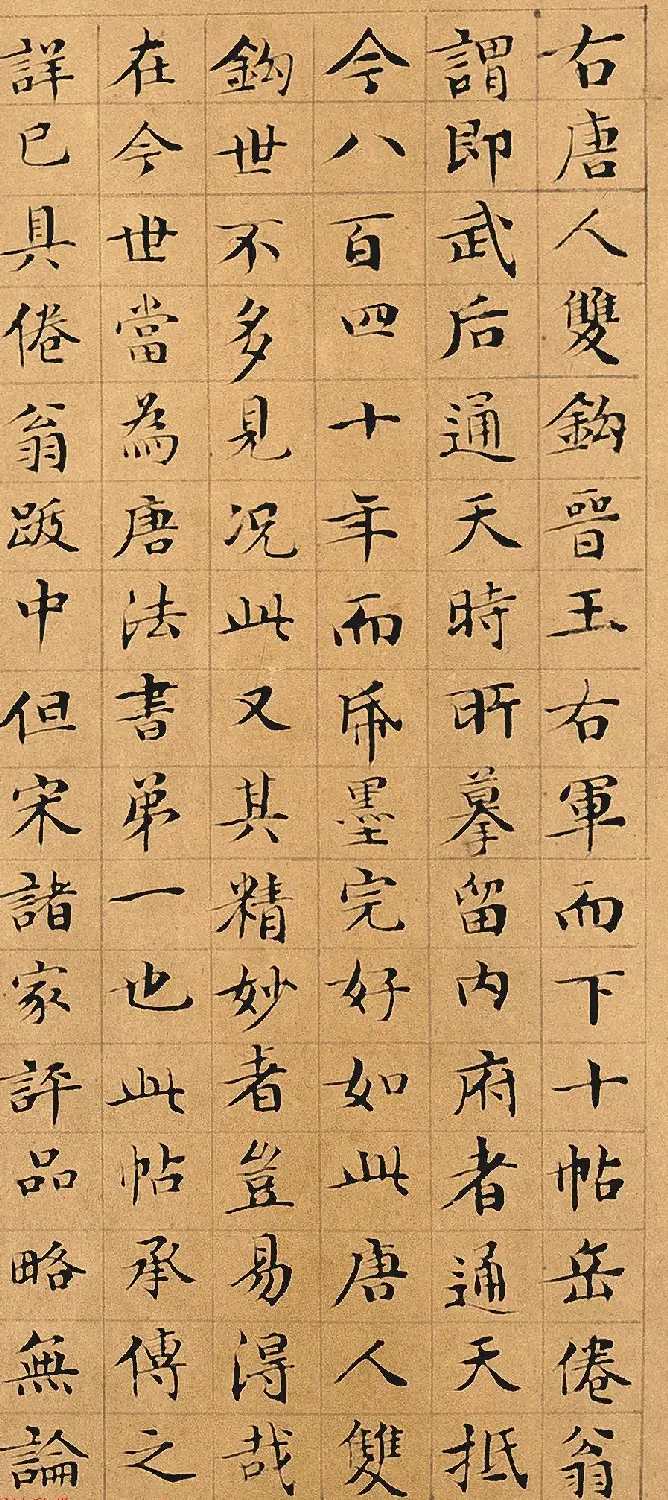 右唐人雙鈎晉王右軍而下十帖岳倦翁
謂即武后通天時所摹留内府者通天抵
今八百四十年而紙墨完好如此唐人雙
鈎世不多見况此又其精妙者豈易得哉
在今世當為唐法書弟一也此帖承傳之
詳已具倦翁跋中但宋諸家評品略無論